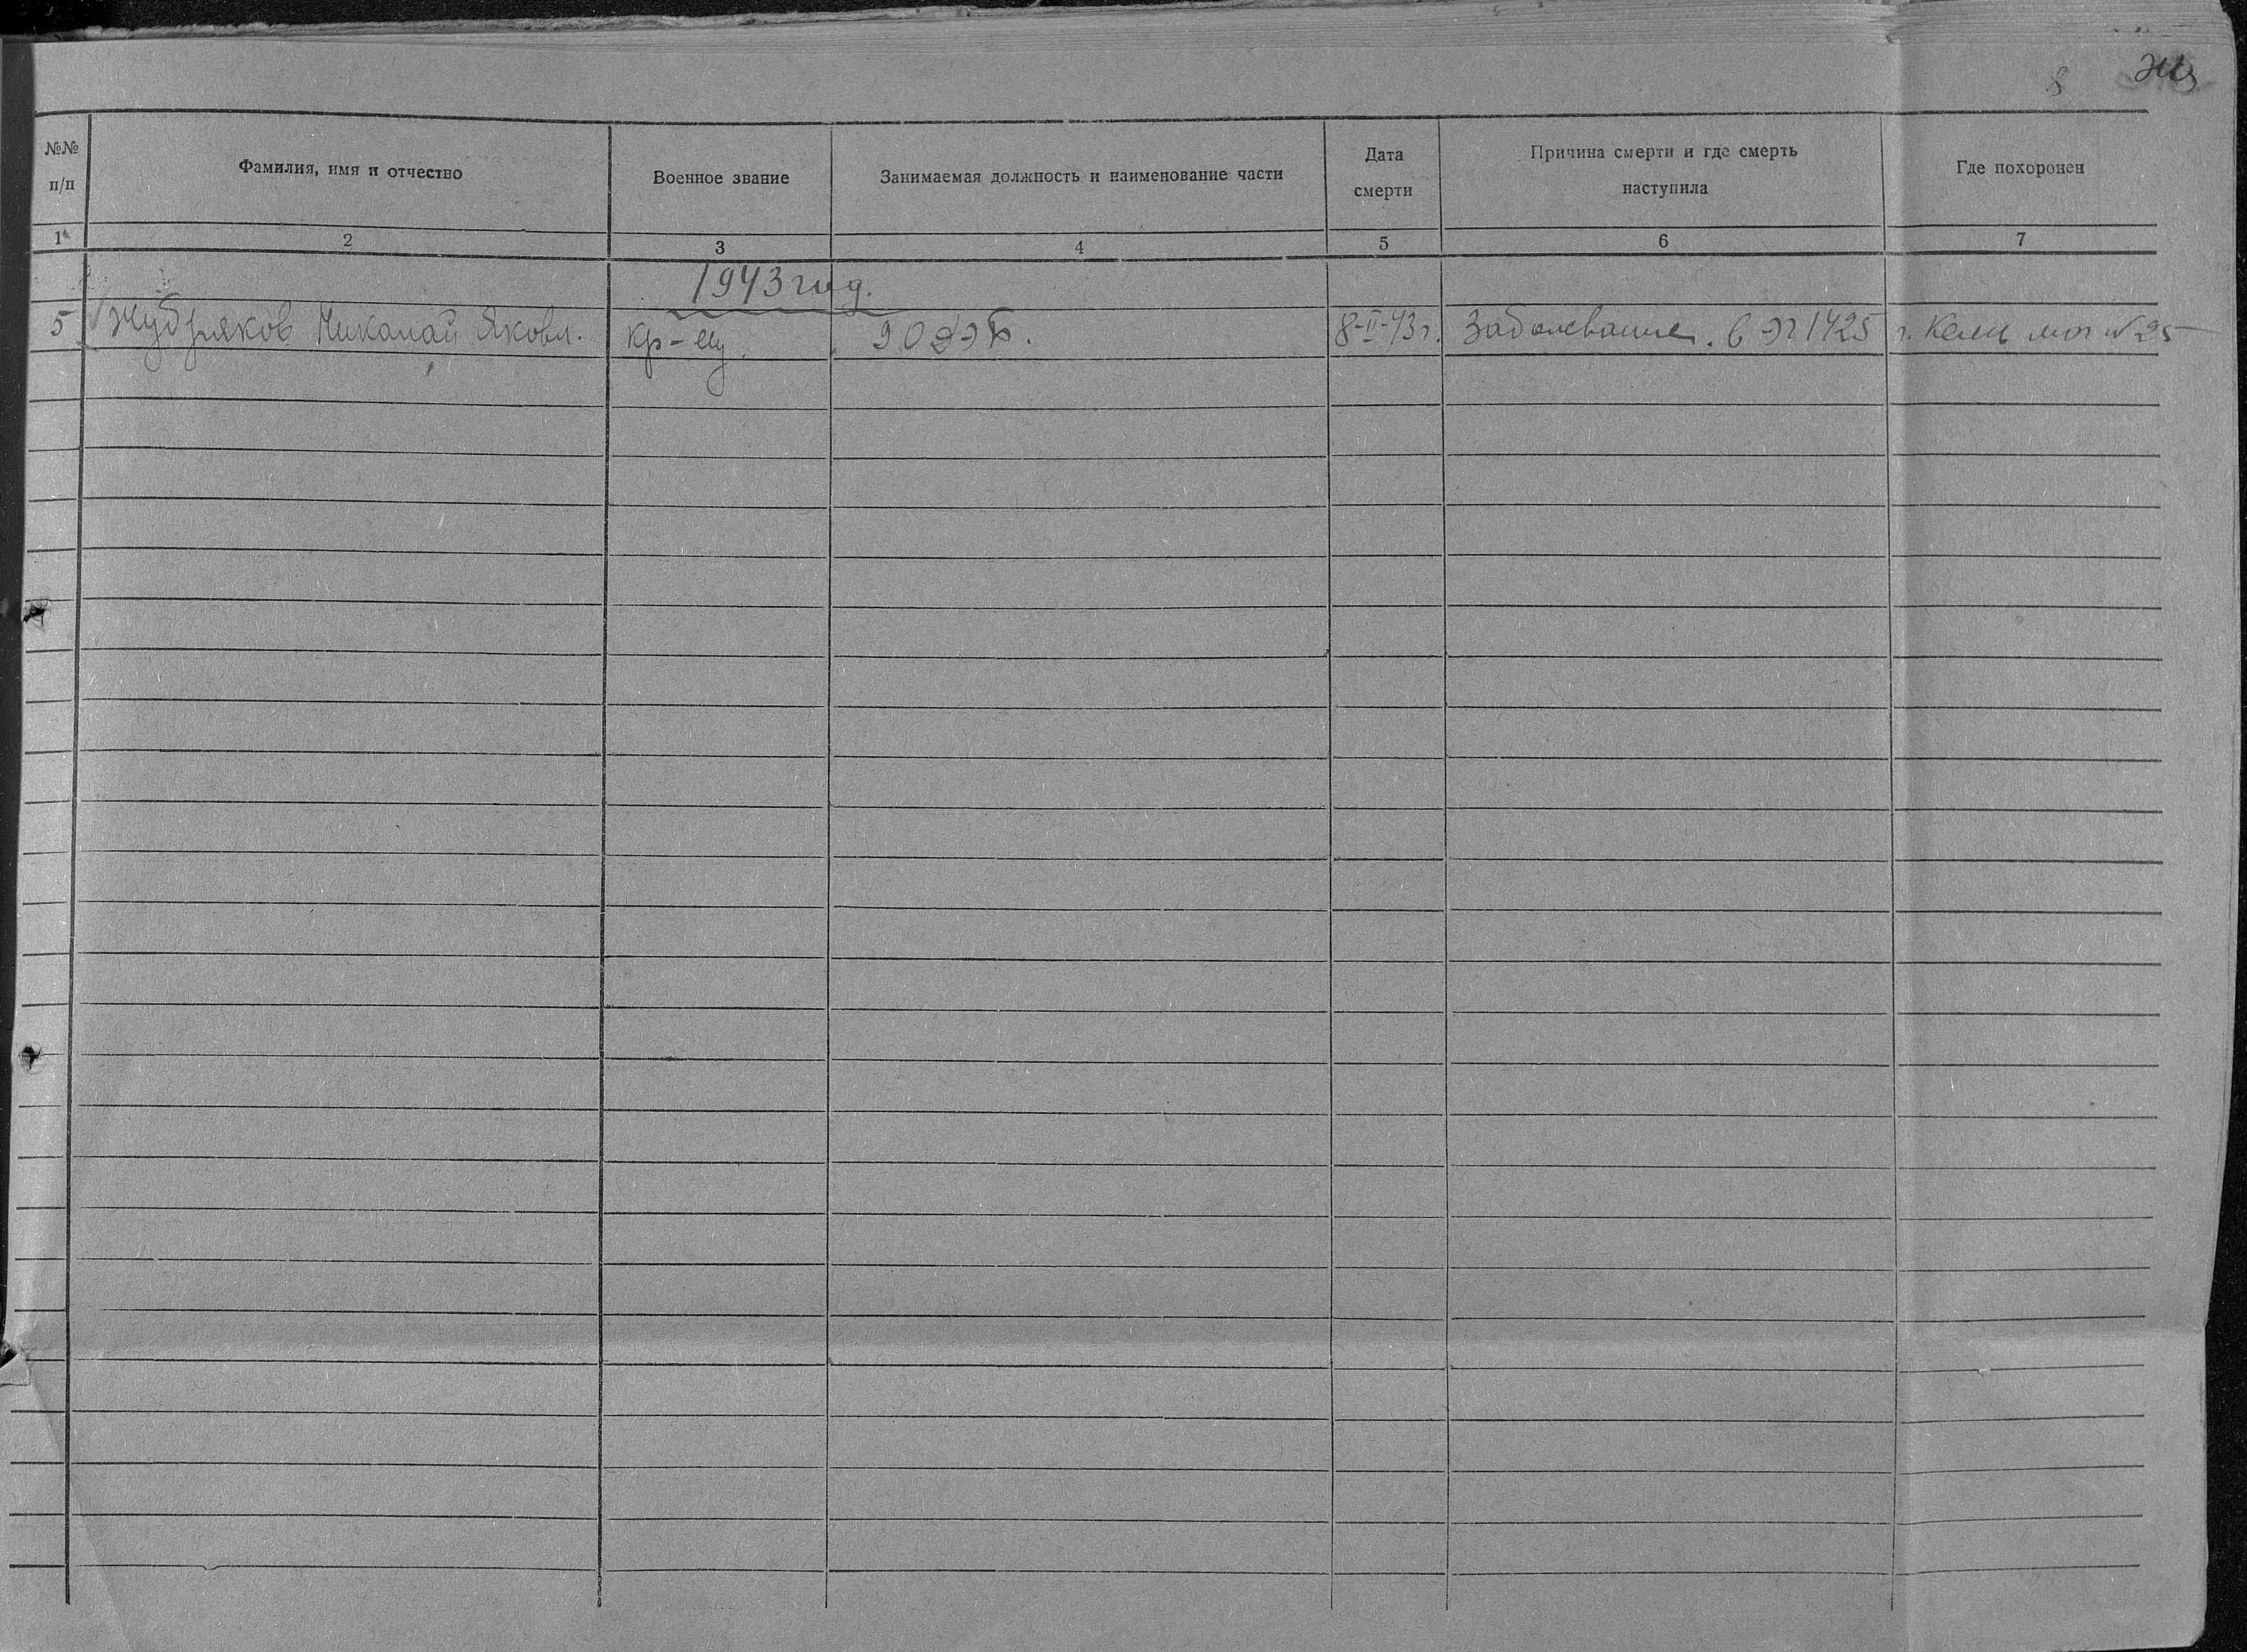 8 Жу
№№ п/п
Фамилия, имя и отчество
Военное звание
Занимаемая должность и наименование части
Дата смерти
Причина смерти и где смерть наступила
Где похоронен
1 2 3 4 5 6 7
1943 год.
5 Жубряков Николай Яковл. кр-ец. 8-II-43 г. Заболевание. в ЭГ 1425 г. Кемь мог № 25